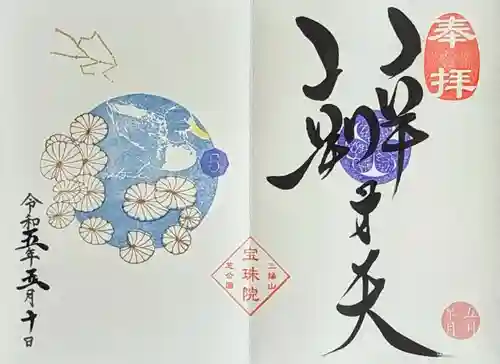 奉拝
辯才天
三縁山
宝珠院
芝公園
5
令和五年五月十日